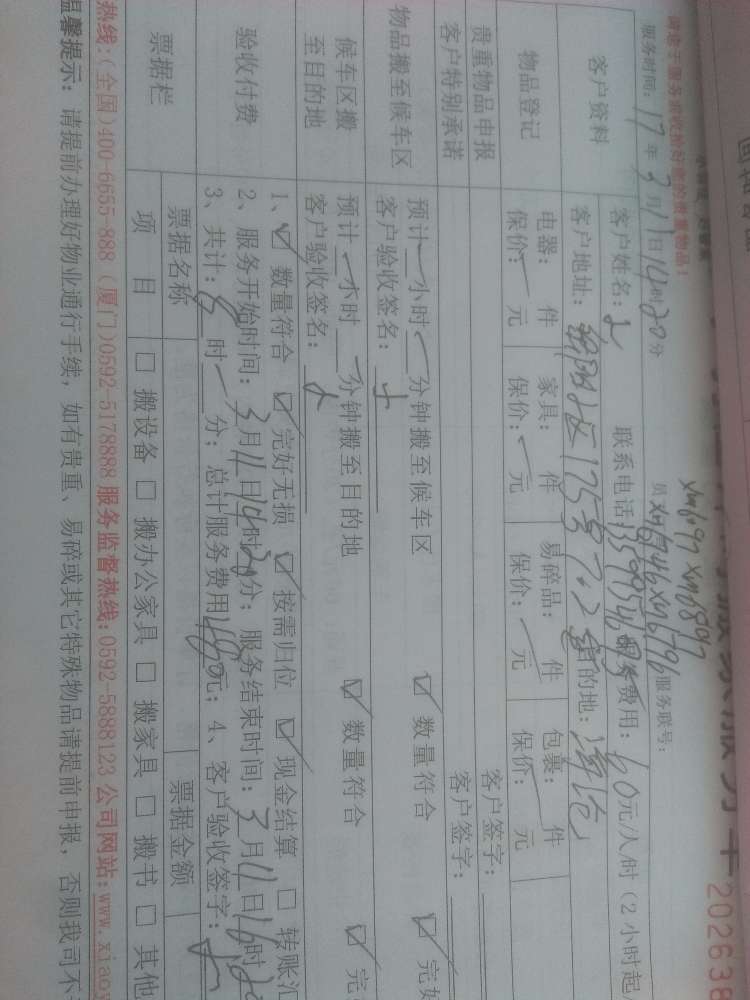 202638
请您于服务前收捡好您的贵重物品!
服务时间: 17年3月11日14时20分
xm6797 xm6897
服务联号:
客户资料
客户姓名: 联系电话 服务费用: 60元/人/时(2小时起
客户地址: 175号702室 目的地:
物品登记
电器: 件 家具: 件 易碎品: 件 包裹: 件
保价:一元 保价:一元 保价:一元 保价:一元
贵重物品申报 客户签字:
客户特别承诺 客户签字:
物品搬至候车区
预计一小时一分钟搬至候车区 ☑ 数量符合 ☑ 完好
客户验收签名:
候车区搬至目的地
预计一小时一分钟搬至目的地 ☑ 数量符合 ☑ 完
客户验收签名:
验收付费
1、☑ 数量符合 ☑ 完好无损 ☑ 按需归位 ☑ 现金结算 ☐ 转账汇
2、服务开始时间: 3月11日14时20分; 服务结束时间: 3月11日16时20
3、共计: 时一分; 总计服务费用480元; 4、客户验收签字:
票据栏
票据名称 票据金额
项目 ☐ 搬设备 ☐ 搬办公家具 ☐ 搬家具 ☐ 搬书 ☐ 其他
热线:(全国)400-6655-888 (厦门)0592-5178888 服务监督热线:0592-5888123 公司网站:www.xiaoy
温馨提示: 请提前办理好物业通行手续, 如有贵重、易碎或其它特殊物品请提前申报, 否则我司不